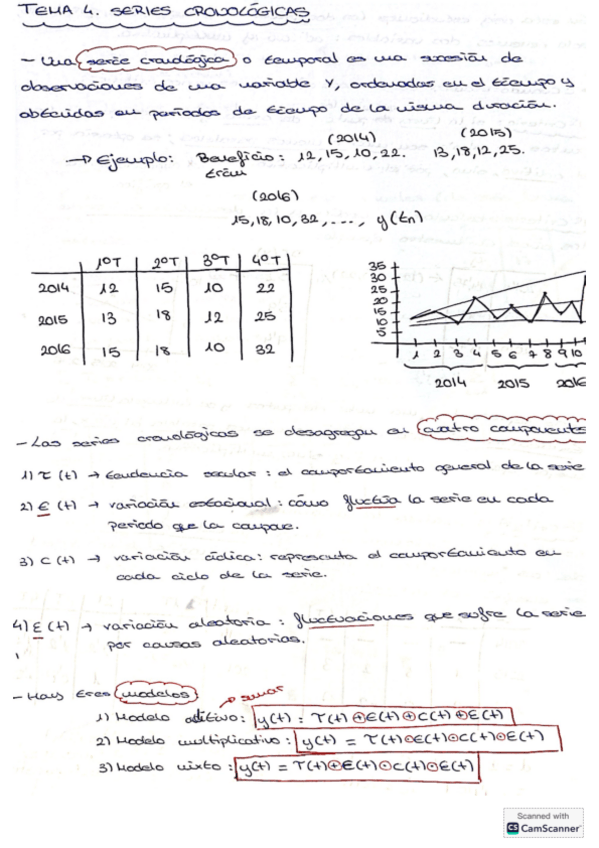 TEMA 4. SERIES CRONOLÓGICAS
- Una serie cronológica o temporal es una sucesión de
observaciones de una variable Y, ordenadas en el tiempo y
obtenidas en períodos de tiempo de la misma duración.
(2014) (2015)
→ Ejemplo: Beneficio: 12, 15, 10, 22. 13, 18, 12, 25.
(2016)
15, 18, 10, 32, ..., y(tn)
1ºT 2ºT 3ºT 4ºT
2014 12 15 10 22
2015 13 18 12 25
2016 15 18 10 32
35
30
25
20
15
10
5
1 2 3 4 5 6 7 8 9 10
2014 2015 2016
- Las series cronológicas se desagregan en cuatro componentes
1) T(t) → tendencia secular: el comportamiento general de la serie
2) E(t) → variación estacional: cómo fluctúa la serie en cada
periodo que la compone.
3) C(t) → variación cíclica: representa el comportamiento en
cada ciclo de la serie.
4) E(t) → variación aleatoria: fluctuaciones que sufre la serie
por causas aleatorias.
- Hay tres modelos
→ sumar
1) Modelo aditivo: y(t) = T(t)⊕E(t)⊕C(t)⊕E(t)
2) Modelo multiplicativo: y(t) = T(t)⊙E(t)⊙C(t)⊙E(t)
3) Modelo mixto: y(t) = T(t)⊕E(t)⊙C(t)⊙E(t)
Scanned with
CS CamScanner